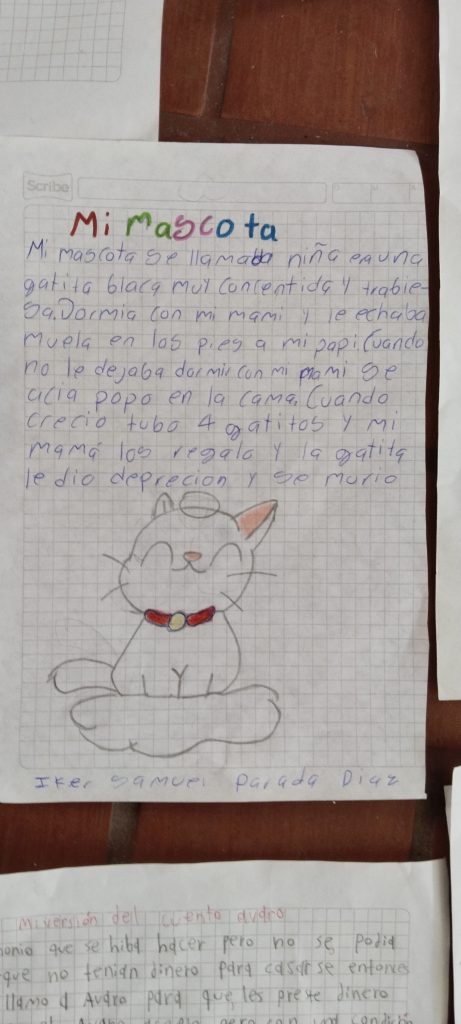 Scribe
Mi mascota
Mi mascota se llamaba niña era una
gatita blaca muy concentida y trabie-
sa. Dormia con mi mami y le echaba
muela en los pies a mi papi. Cuando
no le dejaba dormir con mi mami se
acia popo en la cama. Cuando
crecio tubo 4 gatitos y mi
mamá los regalo y la gatita
le dio deprecion y se murio
Iker Samuel Parada Diaz
mi version del cuento avaro
que se hiba hacer pero no se podia
que no tenian dinero para casarse entonces
llamo a Avaro para que les preste dinero